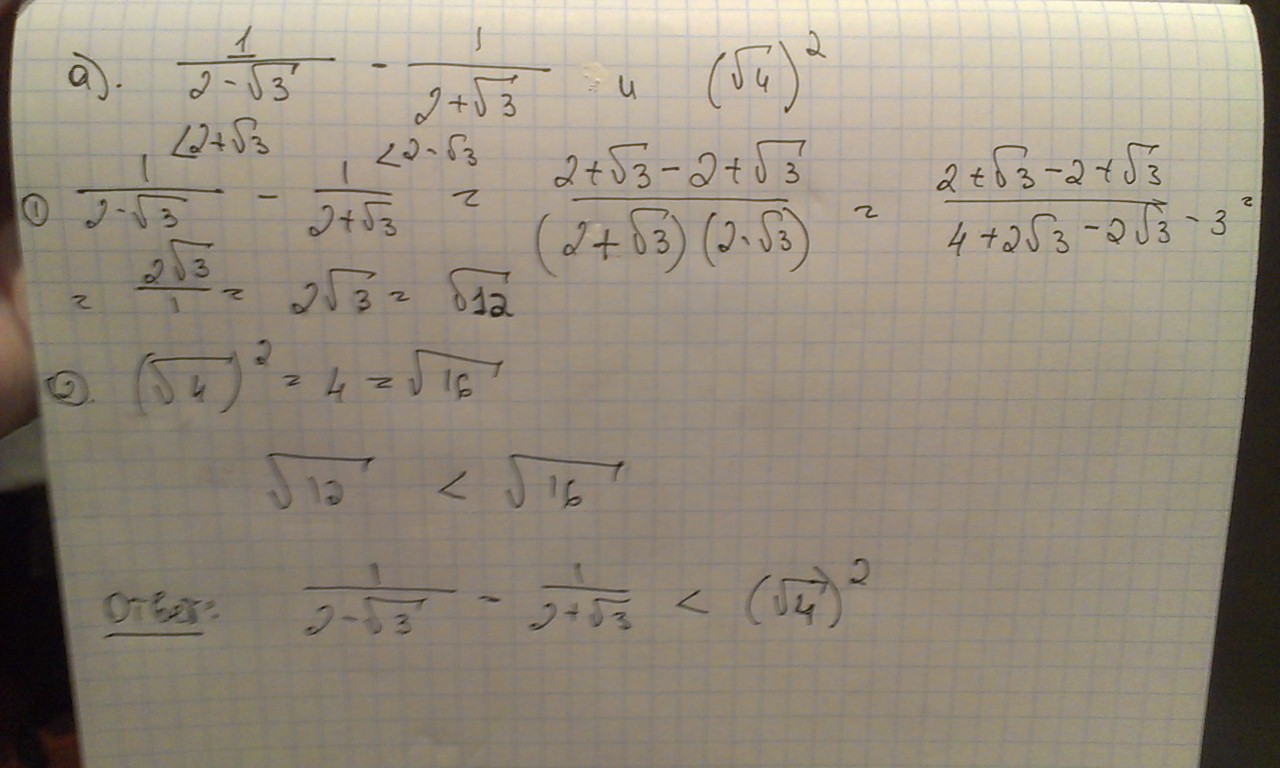 а). 1/(2-√3) - 1/(2+√3) и (√4)²
<2+√3 <2-√3
① 1/(2-√3) - 1/(2+√3) = (2+√3-2+√3)/((2+√3)(2-√3)) = (2+√3-2+√3)/(4+2√3-2√3-3) =
= 2√3/1 = 2√3 = √12
②. (√4)² = 4 = √16
√12 < √16
Ответ: 1/(2-√3) - 1/(2+√3) < (√4)²